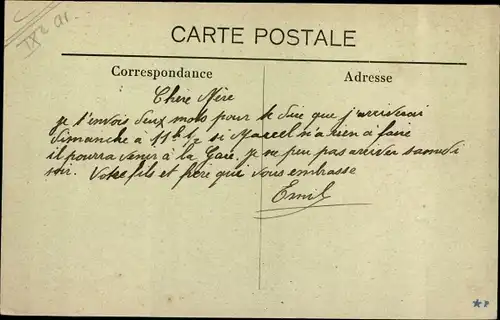 IXe ar
CARTE POSTALE
Correspondance
Adresse
Chère Mère
je t'envois deux mots pour te dire que j'arriverai
dimanche à 11h½ si Marcel n'a rien a faire
il pourra venir à la Gare. je ne peu pas arriver samedi
soir. Votre fils et frère qui vous embrasse
Emile